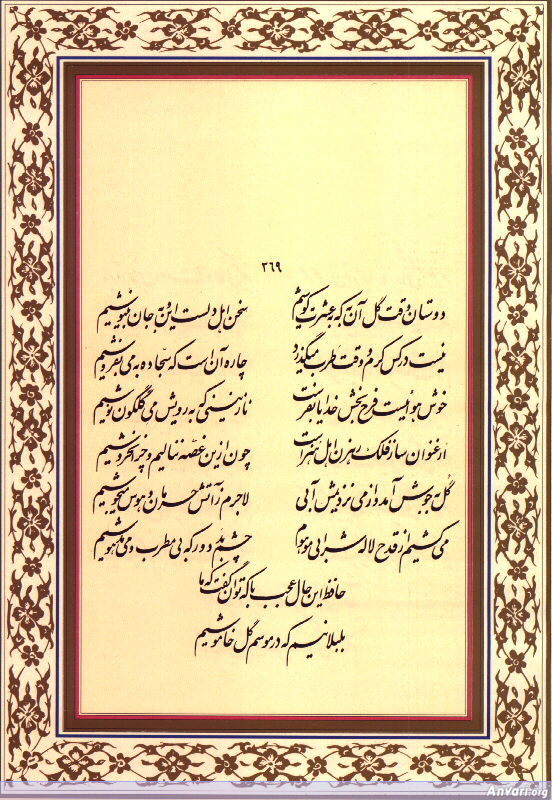 ۳۶۹
دوستان وقت گل آن به که به عشرت کوشیم سخن اهل دلست این و به جان بنیوشیم
نیست در کس کرم و وقت طرب میگذرد چاره آن است که سجاده به می بفروشیم
خوش هوائیست فرح بخش خدایا بفرست نازنینی که به رویش می گلگون نوشیم
ارغنون ساز فلک رهزن اهل هنر است چون ازین غصه ننالیم و چرا نخروشیم
گل به جوش آمد و از می نزدیمش آبی لاجرم ز آتش حرمان و هوس میجوشیم
می کشیم از قدح لاله شرابی موهوم چشم بد دور که بی مطرب و می مدهوشیم
حافظ این حال عجب با که توان گفت که ما
بلبلانیم که در موسم گل خاموشیم
Anvari.org